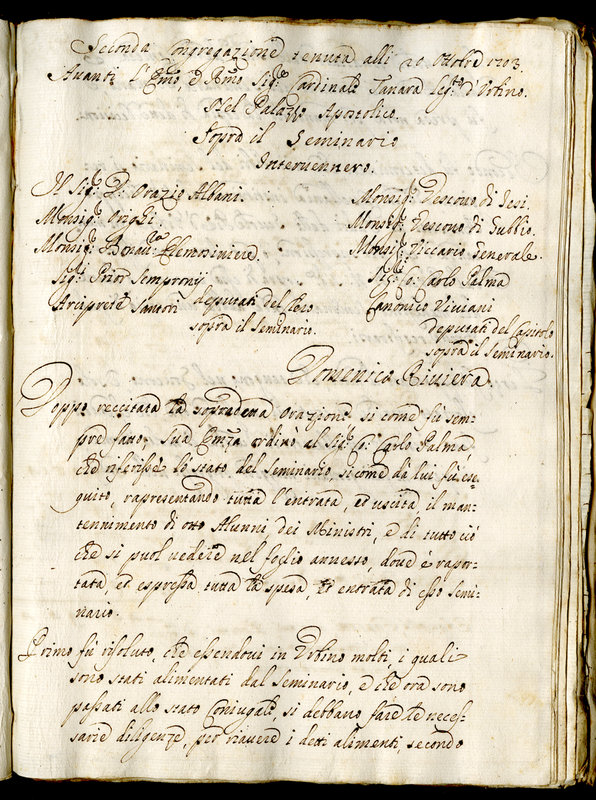 Seconda Congregazione tenuta alli 20 Ottobre 1703.
Avanti l'Emo e Rmo Sig.r Cardinale Tanara Leg.to d'Urbino.
Nel Palazzo Apostolico
Sopra il Seminario
Intervennero.
Il Sig.r D. Orazio Albani.
Monsig.r Orighi.
Monsig.r Bonav.ra
Sig.r Prior Sempronij
Arciprete Santori deputati del Clero
sopra il Seminario.
Monsig.r Vescovo di Jesi.
Monsig.r Vescovo di Gubbio.
Monsig.r Viccario Generale.
Sig.r Co: Carlo Palma
Canonico Viviani
deputati del Capitolo
sopra il Seminario.
Domenico Riviera
Doppo reccitata la sopradetta orazione, si come fù sem=
pre fatto, Sua Em.za ordinò al Sig.r Co: Carlo Palma,
che riferisse lo stato del Seminario, si come dà lui fù ese=
guito, rapresentando tutta l'entrata, et uscita, il man=
tennimento di otto Alunni, dei Ministri, e di tutto ciò
che si puol vedere nel foglio annesso, dove è rapor=
tata, et espressa tutta la spesa, et entrata di esso Semi=
nario.
Primo fù risoluto, che essendovi in Urbino molti, i quali
sono stati alimentati dal Seminario, e che ora sono
passati allo stato Coniugale, si debbano fare le neces=
sarie diligenze, per riavere i detti alimenti, secondo